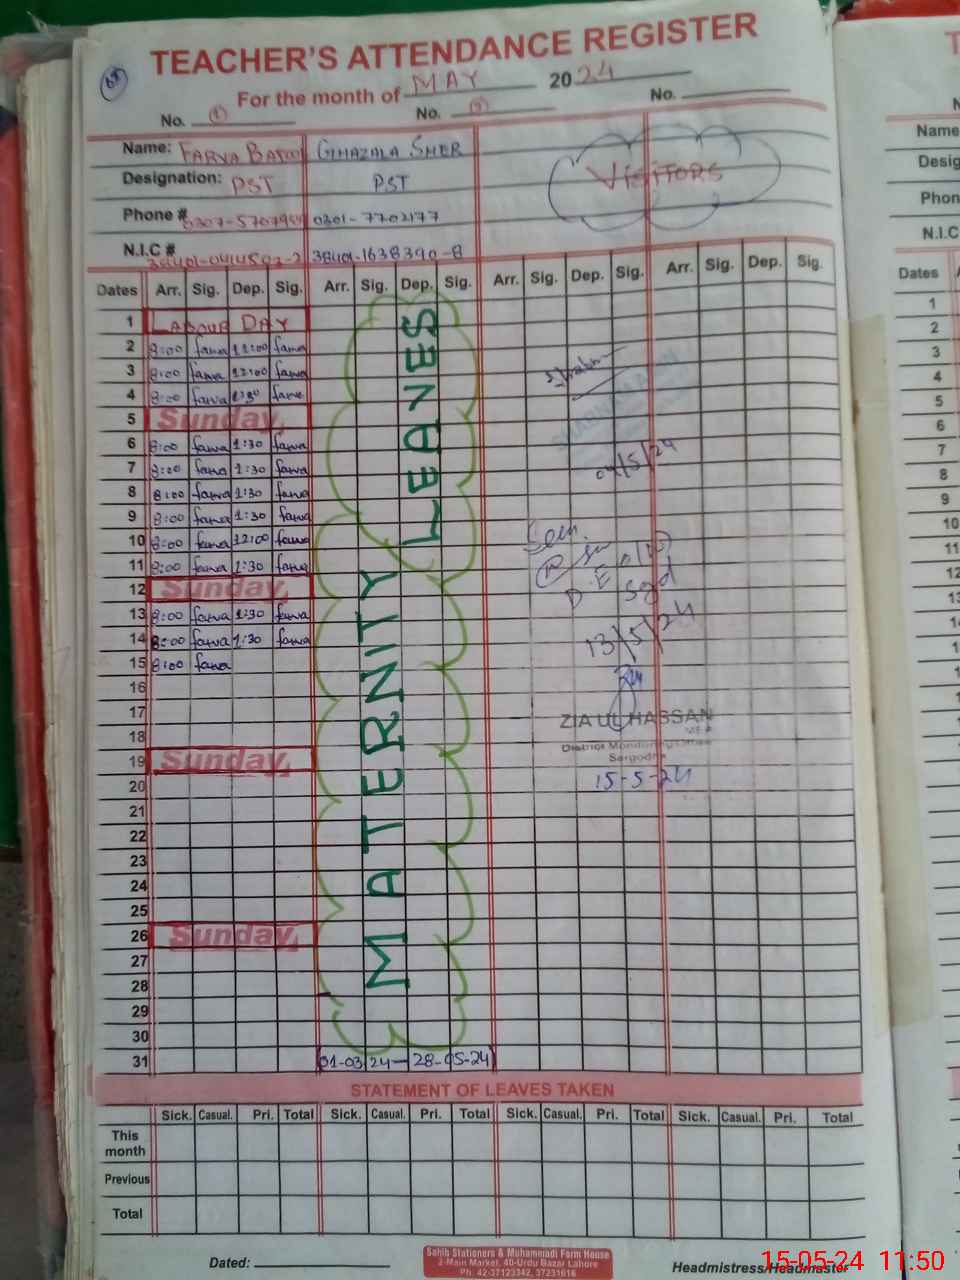 TEACHER'S ATTENDANCE REGISTER
68
For the month of MAY 2024
No. 1 No. 2 No.
Name: FARVA GHAZALA SHER VISITORS
Designation: PST PST
Phone # 0301-7702177
N.I.C # 38401-1638390-8
Dates Arr. Sig. Dep. Sig. Arr. Sig. Dep. Sig. Arr. Sig. Dep. Sig. Arr. Sig. Dep. Sig.
1 LABOUR DAY
2 8:00 farva 11:00 farva
3 8:00 farva 12:00 farva
4 8:00 farva 1:30 farva
5 Sunday
6 8:00 farva 1:30 farva
7 8:00 farva 1:30 farva
8 8:00 farva 1:30 farva
9 8:00 farva 1:30 farva
10 8:00 farva 12:00 farva
11 8:00 farva 1:30 farva
12 Sunday
13 8:00 farva 1:30 farva
14 8:00 farva 1:30 farva
15 8:00 farva
16
17
18
19 Sunday
20
21
22
23
24
25
26 Sunday
27
28
29
30
31 01-03-24 — 28-05-24
MATERNITY LEAVES
04/5/24
Seen.
13/5/24
ZIA UL HASSAN
District Monitoring Officer
Sargodha
15-5-24
STATEMENT OF LEAVES TAKEN
Sick. Casual. Pri. Total Sick. Casual. Pri. Total Sick. Casual. Pri. Total Sick. Casual. Pri. Total
This
month
Previous
Total
Dated:
Sahib Stationers & Muhammadi Form House
2-Main Market, 40-Urdu Bazar Lahore
Ph. 42-37123342, 37231616
Headmistress/Headmaster
15-05-24 11:50
T
N
Name
Desig
Phon
N.I.C
Dates
1
2
3
4
5
6
7
8
9
10
11
12
13